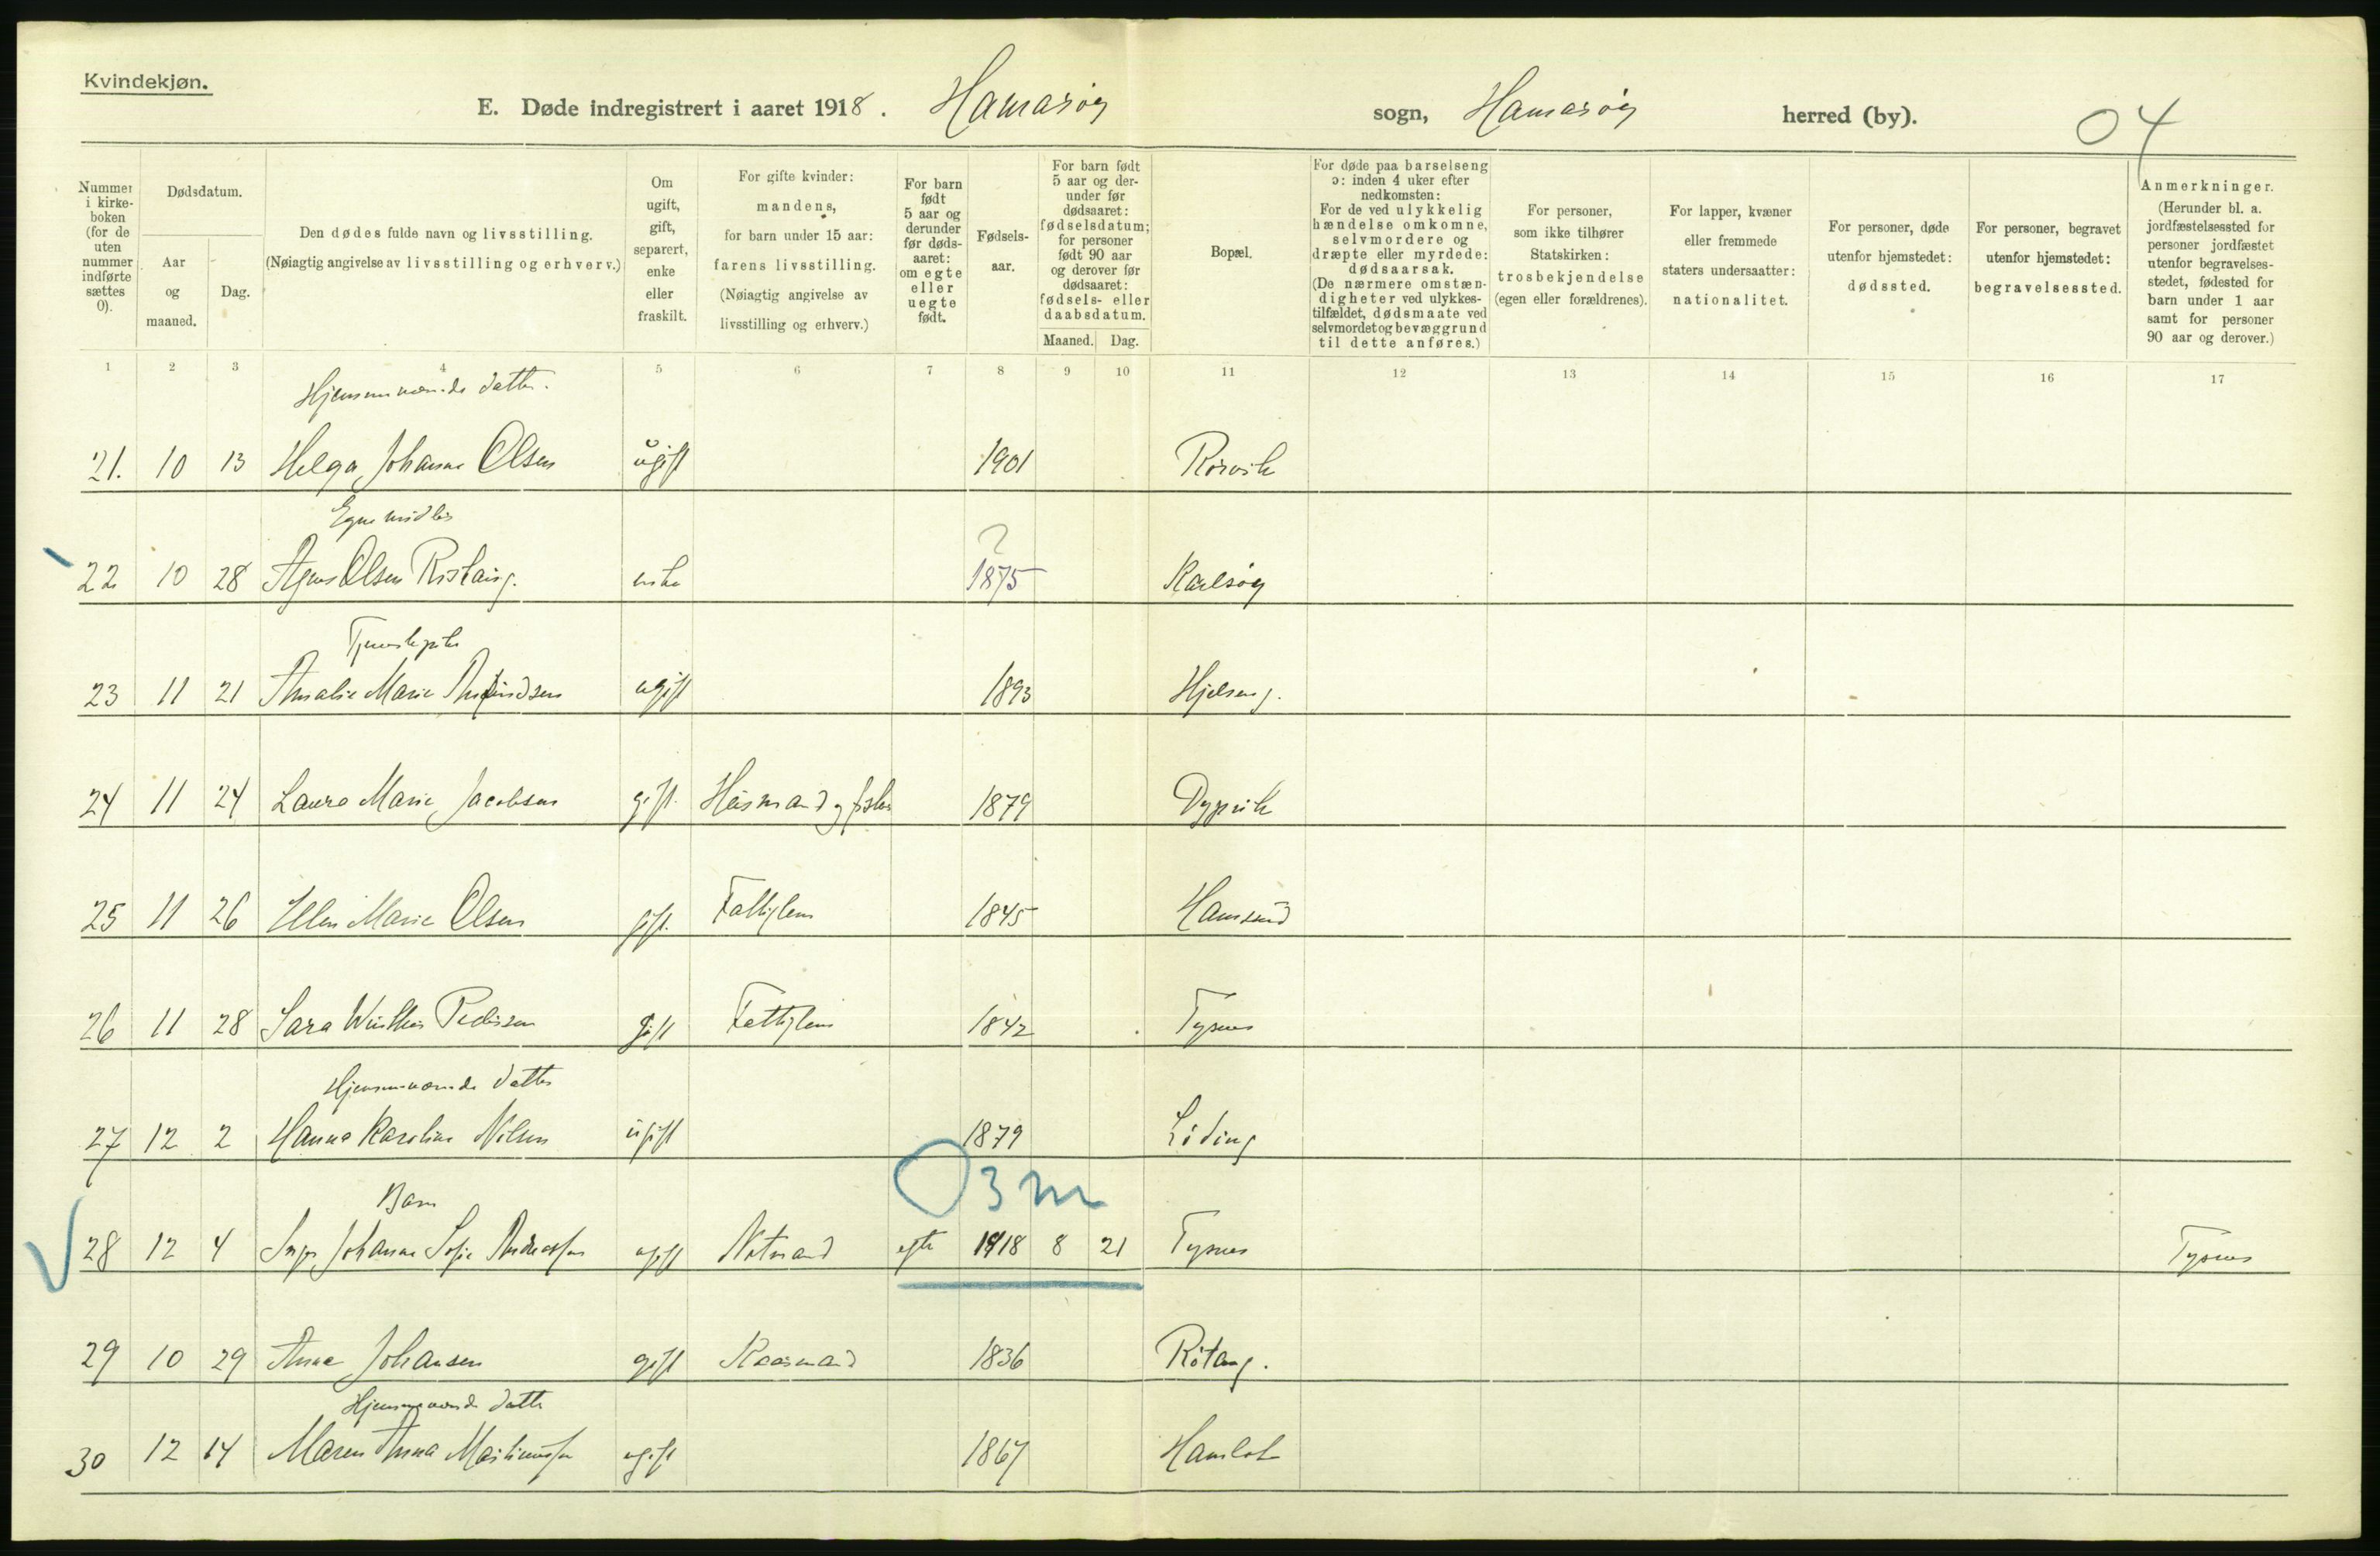 Kvindekjøn.
E. Døde indregistrert i aaret 1918. Hamarøy sogn, Hamarøy herred (by). 04
Nummer i kirke-boken (for de uten nummer indførte sættes 0).
Dødsdatum.
Aar og maaned.
Dag.
Den dødes fulde navn og livsstilling.
(Nøiagtig angivelse av livsstilling og erhverv.)
Om ugift, gift, separert, enke eller fraskilt.
For gifte kvinder: mandens, for barn under 15 aar: farens livsstilling. (Nøiagtig angivelse av livsstilling og erhverv.)
For barn født 5 aar og derunder før døds-aaret: om egte eller uegte født.
Fødsels-aar.
For barn født 5 aar og der-under før dødsaaret: fødselsdatum; for personer født 90 aar og derover før dødsaaret: fødsels- eller daabsdatum.
Maaned. Dag.
Bopæl.
For døde paa barselseng ɔ: inden 4 uker efter nedkomsten: For de ved ulykkelig hændelse omkomne, selvmordere og dræpte eller myrdede: dødsaarsak. (De nærmere omstæn-digheter ved ulykkes-tilfældet, dødsmaate ved selvmordet og bevæggrund til dette anføres.)
For personer, som ikke tilhører Statskirken: trosbekjendelse (egen eller forældrenes).
For lapper, kvæner eller fremmede staters undersaatter: nationalitet.
For personer, døde utenfor hjemstedet: dødssted.
For personer, begravet utenfor hjemstedet: begravelsessted.
Anmerkninger. (Herunder bl. a. jordfæstelsessted for personer jordfæstet utenfor begravelses-stedet, fødested for barn under 1 aar samt for personer 90 aar og derover.)
1 2 3 4 5 6 7 8 9 10 11 12 13 14 15 16 17
Hjemmeværende datter.
21. 10 13 Helga Johanne Olsen ugift 1901 Rørvik
Egne midler
?
22 10 28 Agnes Olsen enke 1875 Karlsøy
23 11 21 Amalie Marie ugift 1893
24 11 24 Laura Marie Jacobsen gift. Husmand og fisker 1879 Dypvik
25 11 26 Ellen Marie Olsen gift. Fattiglem 1845 Hamsund
26 11 28 Sara Pedersen gift Fattiglem 1842 Tysnes
Hjemmeværende datter
27 12 2 Hanna Karoline Nilsen ugift 1879 Løding
0 3 m
Barn
28 12 4 Johanne Sofie Andreassen ugift Notmand egte 1918 8 21 Tysnes Tysnes
29 10 29 Anne Johansen gift Kaarmand 1836
Hjemmeværende datter
30 12 14 Maren Anna Martinussen ugift 1867